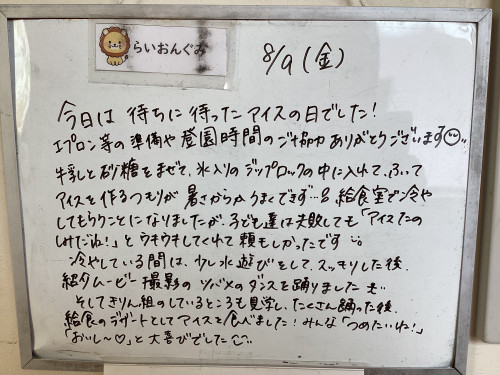 らいおんぐみ
8/9(金)
今日は 待ちに待ったアイスの日でした!
エプロン等の準備や登園時間のご協力ありがとうございます
牛乳と砂糖をまぜて、氷入りのジップロックの中に入れて、ふって
アイスを作るつもりが暑さからかうまくできず…。給食室で冷や
してもらうことになりましたが、子ども達は失敗しても「アイスたの
しみだね!」とウキウキしてくれて頼もしかったです
冷やしている間は、少し水遊びをして、スッキリした後、
紹介ムービー撮影のツバメのダンスを踊りました
そしてきりん組のしているところも見学し、たくさん踊った後、
給食のデザートとしてアイスを食べました!みんな「つめたいね!」
「おいし〜♡」と大喜びでした